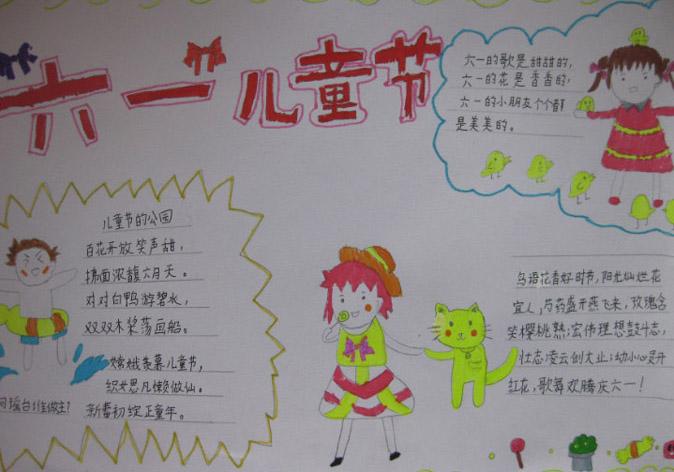 六一儿童节
六一的歌是甜甜的，
六一的花是香香的，
六一的小朋友个个都
是美美的。
儿童节的公园
百花开放笑声甜，
拂面浓馥六月天。
对对白鸭游碧水，
双双木桨荡画船。
嫦娥羡慕儿童节，
织女思凡懒做仙。
瑶台谁做主？
新蕾初绽正童年。
鸟语花香好时节，阳光灿烂花
宜人，芍药盛开燕飞来，玫瑰含
笑樱桃熟；宏伟理想鼓斗志，
壮志凌云创大业；幼小心灵开
红花，歌舞欢腾庆六一！